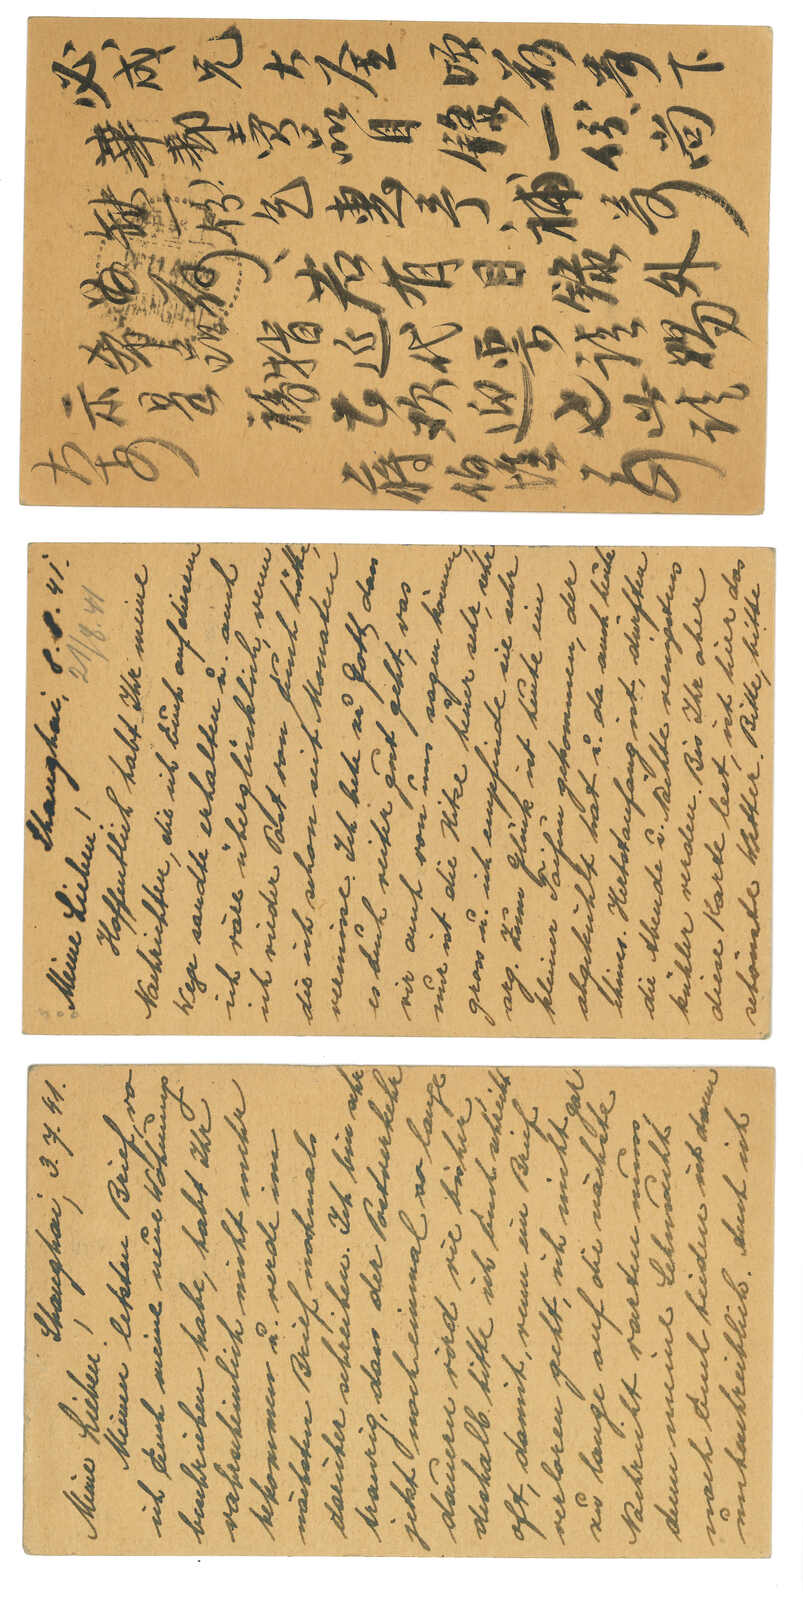 必成兄大鉴 頃荷寄下
華郵賣品目錄一份尚
缺一份乞惠予補寄
若有目錄外
示是
Shanghai, 8.8.41.
21/8.41
Meine Lieben!
Hoffentlich habt Ihr meine
Nachrichten, die ich Euch auf diesem
Wege sandte erhalten u. auch
ich wäre überglücklich, wenn
ich wieder Post von Euch hätte,
die ich schon seit Monaten
vermisse. Ich bete zu Gott, dass
es Euch weiter gut geht, was
wir auch von uns sagen können,
nur ist die Hitze heuer sehr, sehr
gross u. ich empfinde sie sehr
arg. Zum Glück ist heute ein
kleiner Taifun gekommen, der
abgekühlt hat u. da auch heute
chines. Herbstanfang ist, dürften
die Abende u. Nächte wenigstens
kühler werden. Bis Ihr aber
diese Karte lest, ist hier das
schönste Wetter. Bitte, bitte
Shanghai, 3.7.41.
Meine Lieben!
Meinen letzten Brief, wo
ich Euch meine neue Wohnung
beschrieben habe, habt Ihr
wahrscheinlich nicht mehr
bekommen u. werde im
nächsten Brief nochmals
darüber schreiben. Ich bin sehr
traurig, dass der Postverkehr
jetzt noch einmal so lange
dauern wird wie bisher,
deshalb bitte ich Euch, schreibt
oft, damit, wenn ein Brief
verloren geht, ich nicht gar
so lange auf die nächste
Nachricht warten muss,
denn meine Sehnsucht
nach Euch beiden ist dann
unbeschreiblich. Auch ich